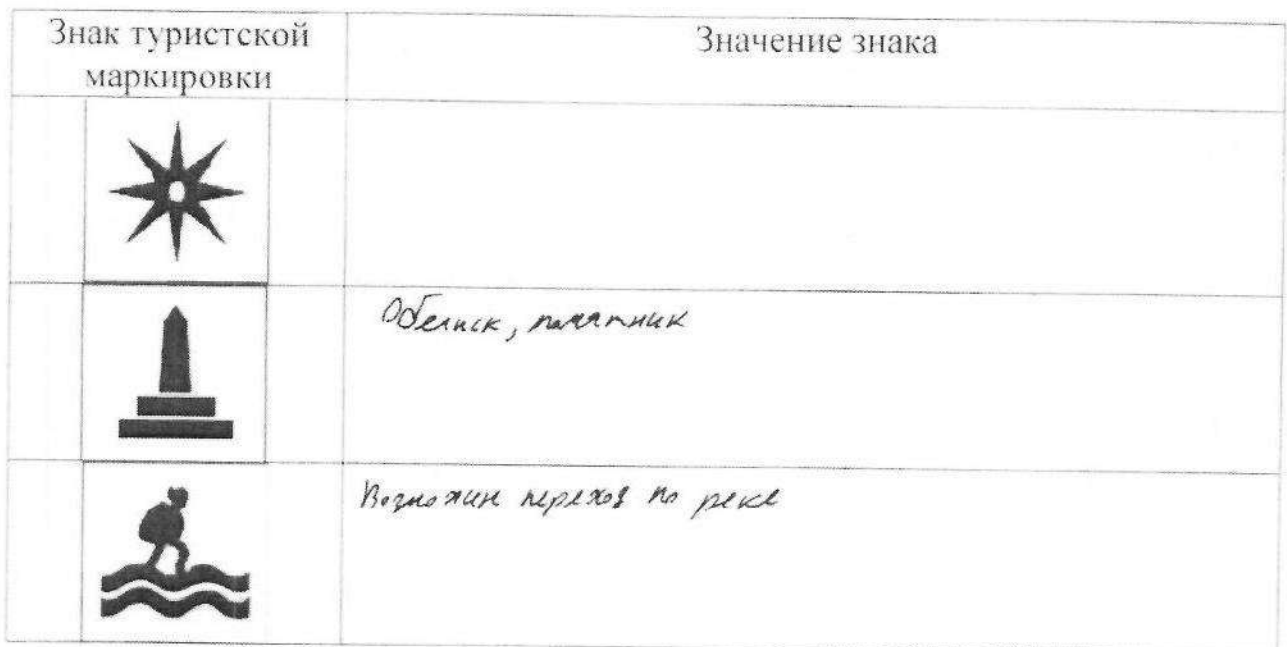 Знак туристской
маркировки
Значение знака
Обелиск, памятник
Возможин переход по реке